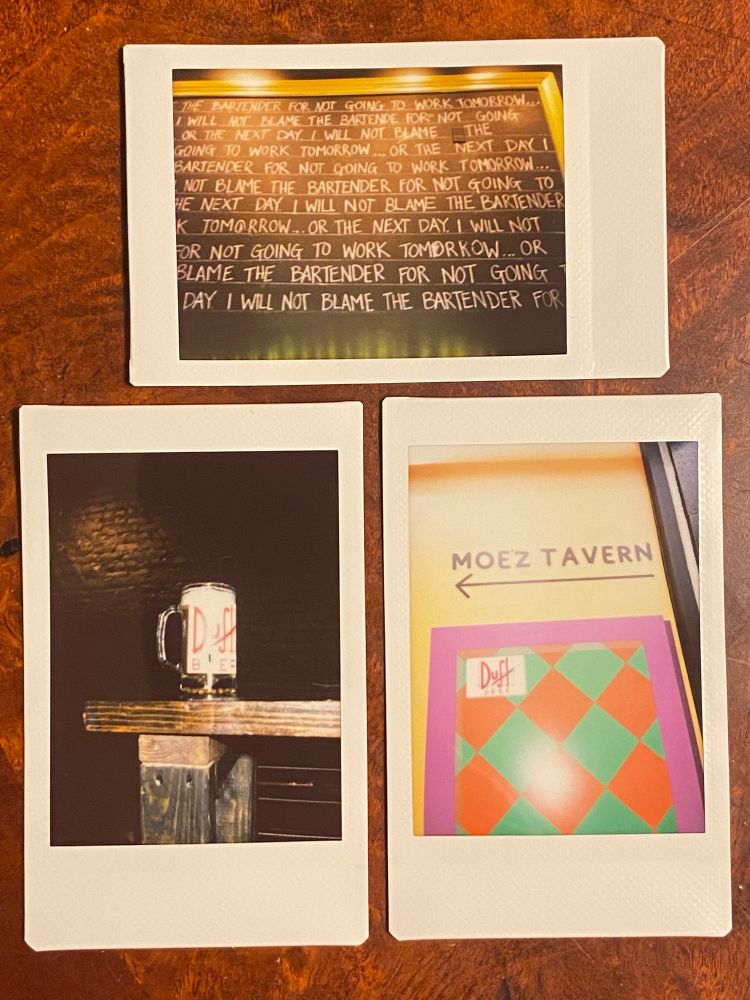 THE BARTENDER FOR NOT GOING TO WORK TOMORROW...
I WILL NOT BLAME THE BARTENDE FOR NOT GOING
OR THE NEXT DAY. I WILL NOT BLAME THE
GOING TO WORK TOMORROW... OR THE NEXT DAY I
BARTENDER FOR NOT GOING TO WORK TOMORROW...
NOT BLAME THE BARTENDER FOR NOT GOING TO
HE NEXT DAY. I WILL NOT BLAME THE BARTENDER
K TOMORROW... OR THE NEXT DAY. I WILL NOT
FOR NOT GOING TO WORK TOMORROW... OR
BLAME THE BARTENDER FOR NOT GOING T
DAY I WILL NOT BLAME THE BARTENDER FOR
Duff
BEE
MOE'Z TAVERN
Duff
BEER